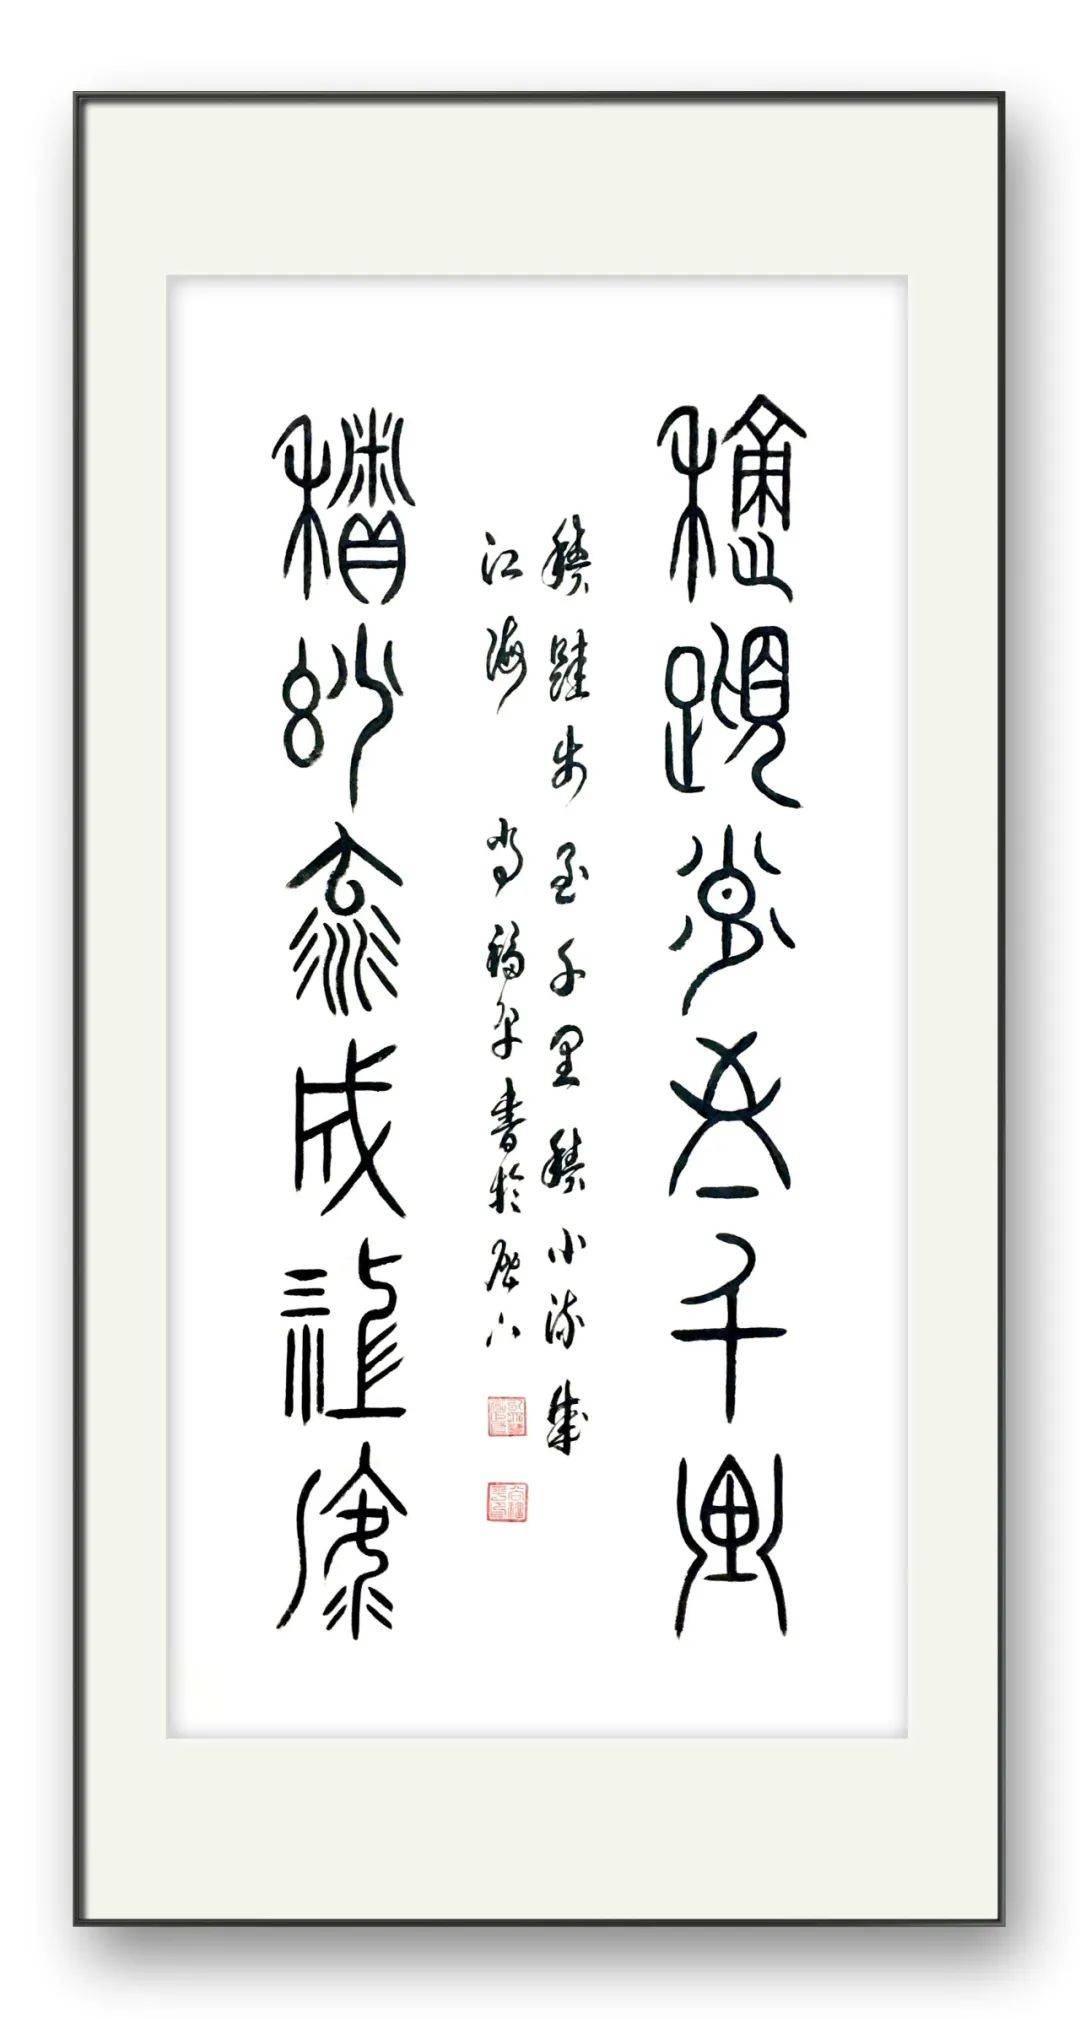 積跬步至千里
積小流成江海
積跬步至千里積小流成
江海 尚福書於